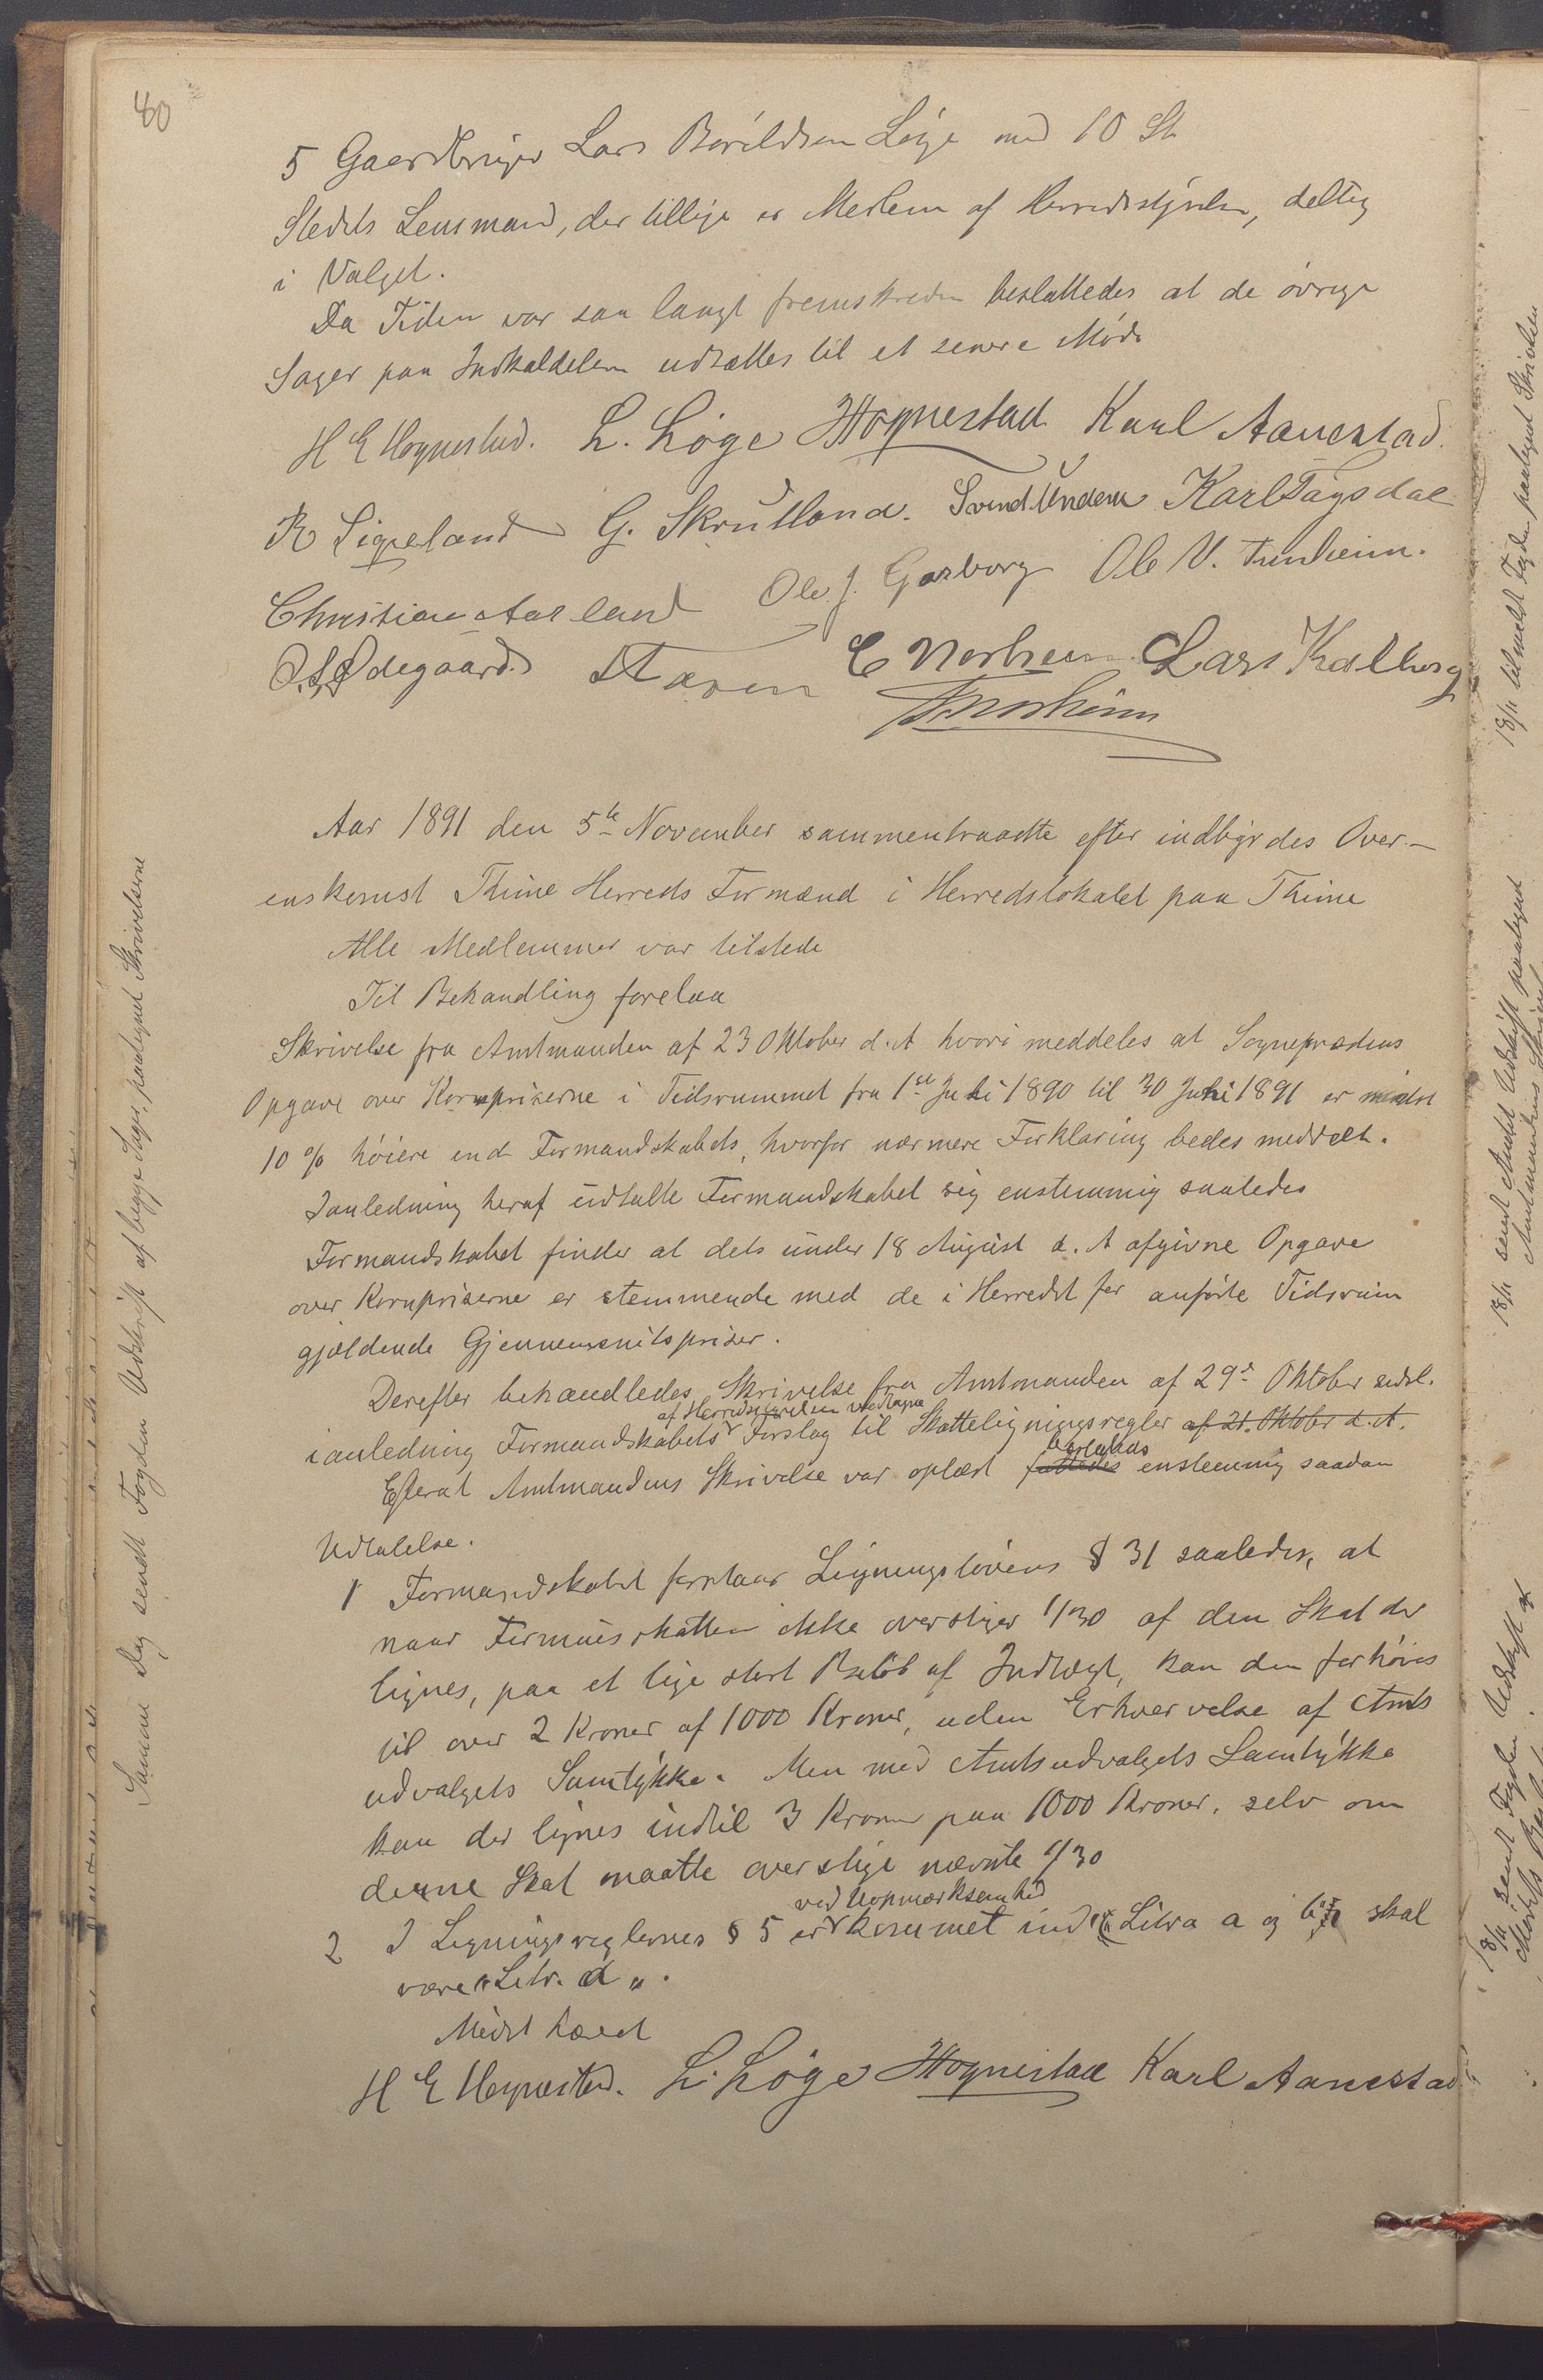 80
5 Gaardbruger Lars Baarildsen Løge med 10 St
Stedets Lensmand, der tillige er Medlem af Herredsstyrelsen, deltog
i Valget.
Da Tiden var saa langt fremskreden besluttedes at de øvrige
Sager paa Indkaldelsen udsættes til et senere Møde
H E Hognestad. L. Løge Hognestad Karl Aanestad.
R Sigveland G. Skrudland. Svend Undem Karl Tagsdal
Christian Aarsland Ole J. Garborg Ole V. Tunheim.
O. S. Ødegaard. Aaren E Norheim. Lars Kalberg
Norheim
Aar 1891 den 5te November sammentraadte efter indbyrdes Over-
enskomst Thime Herreds Formænd i Herredslokalet paa Thime
Alle Medlemmer var tilstede
Til Behandling forelaa
Skrivelse fra Amtmanden af 23 Oktober d. A hvori meddeles at Sognepræstens
Opgave over Kornpriserne i Tidsrummet fra 1ste Juli 1890 til 30 Juni 1891 er mindst
10 % høiere end Formandskabets, hvorfor nærmere Forklaring bedes meddelt.
I anledning heraf udtalte Formandskabet sig enstemmig saaledes
Formandskabet finder at dets under 18 August d. A afgivne Opgave
over Kornpriserne er stemmende med de i Herredet for anførte Tidsrum
gjældende Gjennemsnitspriser.
Derefter behandledes Skrivelse fra Amtmanden af 29de Oktober sidstl.
af Herredsstyrelsen vedtagne
i anledning Formandskabets Forslag til Skatteligningsregler af 21. Oktober d. A.
besluttedes
Efterat Amtmandens Skrivelse var oplæst fattedes enstemmig saadan
Udtalelse.
1 Formandskabet forstaar Ligningslovens § 31 saaledes, at
naar Formuesskatten ikke overstiger 1/30 af den Skat der
lignes, paa et lige stort Beløb af Indtægt, kan den forhøies
til over 2 Kroner af 1000 Kroner, uden Erhvervelse af Amts
udvalgets Samtykke. Men med Amtsudvalgets Samtykke
kan der lignes indtil 3 Kroner paa 1000 Kroner, selv om
denne Skat maatte overstige nævnte 1/30
ved Uopmærksomhed
2 I Ligningsreglernes § 5 er kommet ind "Litra a og b" skal
være "Litr. d".
Mødet hævet
H E Hognestad. L. Løge Hognestad Karl Aanestad
Samme Dag sendt Fogden Udskrift af begge Sager, paategnet Skrivelserne
18/11 tilmeldt Fogden paategnet Skrivelsen
18/11 sendt Amtet Udskrift paategnet
Amtmandens
18/11 sendt Fogden Udskrift af